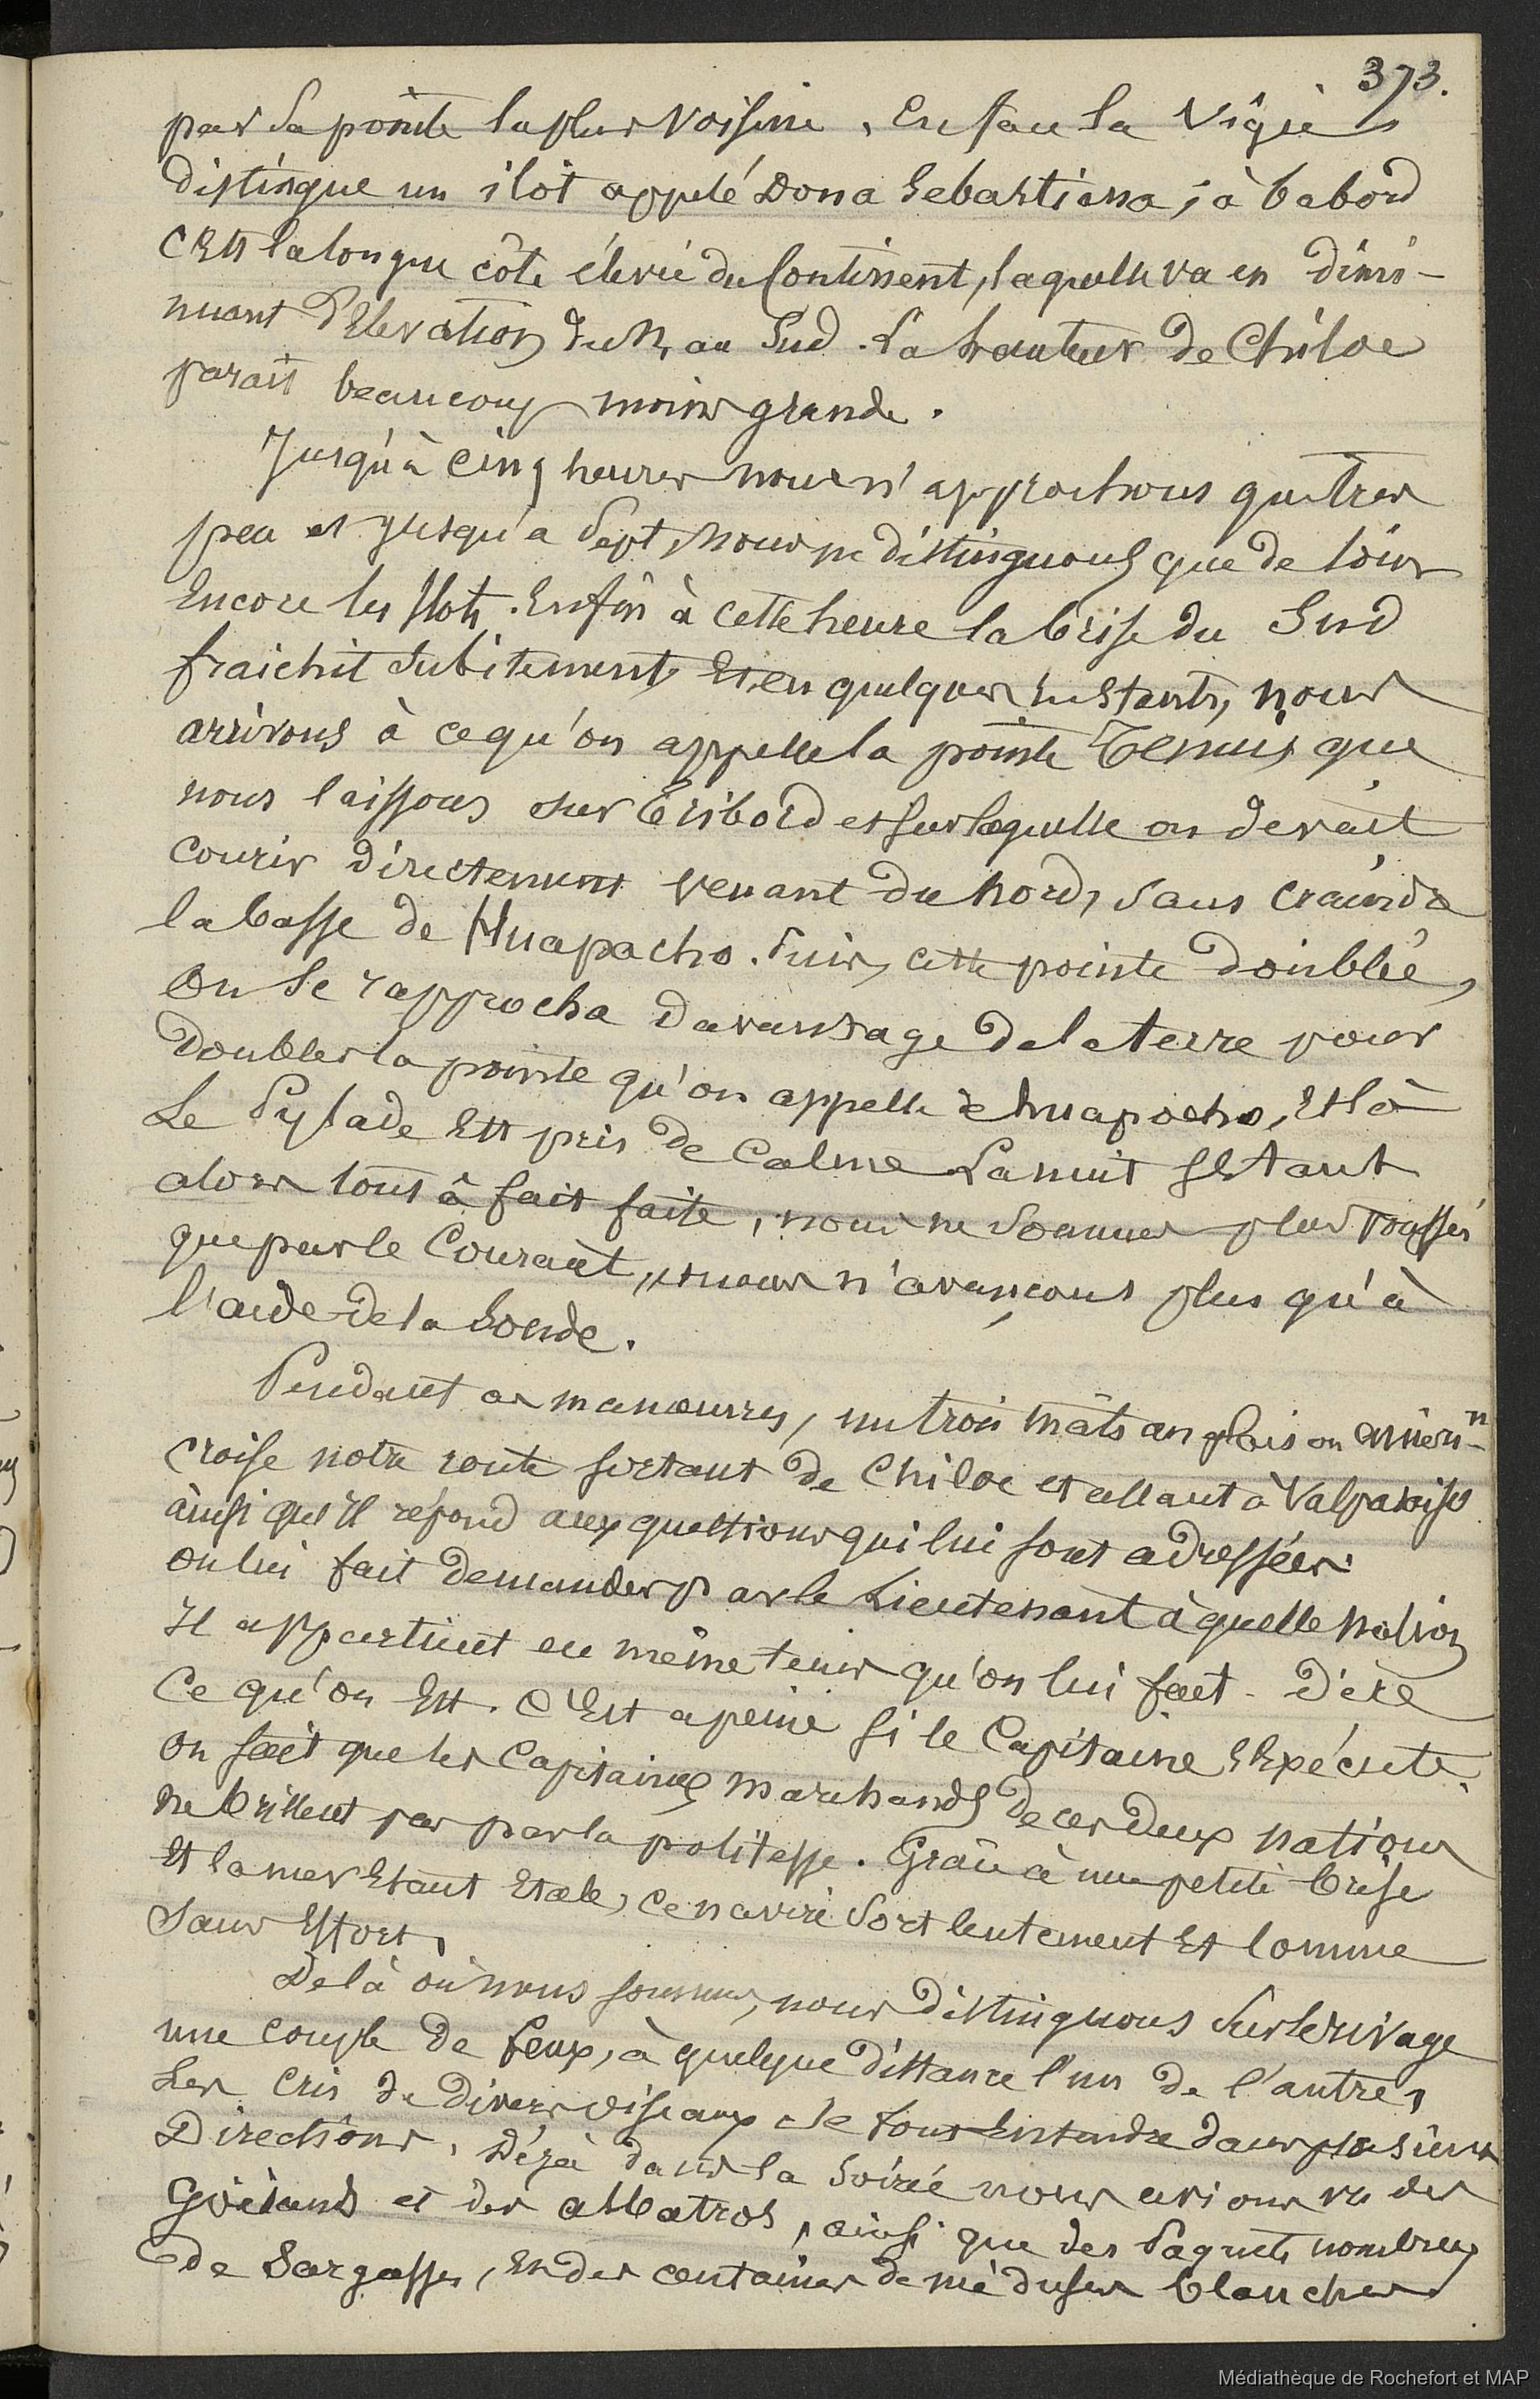 373.
par sa pointe la plus voisine. En face la Vigie
distingue un ilot appelé Dona Sebastiana; à babord
c'Est la longue côte élevée du Continent, laquelle va en dimi-
nuant d'Elevation du N. au Sud. La hauteur de Chiloe
parait beaucoup moins grande.
Jusqu'à cinq heures nous n'approchons que très
peu et jusqu'a Sept, nous ne distinguons que de loin
Encore les Ilots. Enfin à cette heure la brise du Sud
fraichit subitement, Et, en quelques Instants, nous
arrivons à ce qu'on appelle la pointe Tenuis que
nous laissons sur Tribord et sur laquelle on devait
courir directement venant du Nord, sans craindre
la basse de Huapacho. Puis, cette pointe doublée,
On se rapprocha davantage de la terre pour
doubler la pointe qu'on appelle de huapacho, Et là
Le Pylade Est pris de Calme. La nuit s'Etant
alors tout à fait faite, nous ne sommes plus poussés
que par le Courant, et nous n'avançons plus qu'à
l'aide de la Sonde.
Pendant ces manœuvres, un trois mâts anglais ou améri-n
croise notre route sortant de Chiloe et allant à Valparaiso
ainsi qu'Il répond aux questions qui lui sont adressées.
On lui fait demander par le Lieutenant à quelle Nation
Il appartient en même tems qu'on lui fait dire
Ce qu'on Est. C'Est a peine si le Capitaine s'Exécute.
On sait que les Capitaines Marchands de ces deux nations
ne brillent pas par la politesse. Grâce à une petite brise
Et la mer Etant Etale, ce navire sort lentement Et comme
sans Effort.
De là où nous sommes, nous distinguons sur le rivage
une couple de feux, à quelque distance l'un de l'autre,
Les cris de divers oiseaux se font Entendre dans plusieurs
Directions. Déjà dans la soirée nous avions vu des
Goëlands et des albatros, ainsi que des Paquets nombreux
de Sargasses, Et des centaines de méduses blanches
Médiathèque de Rochefort et MAP